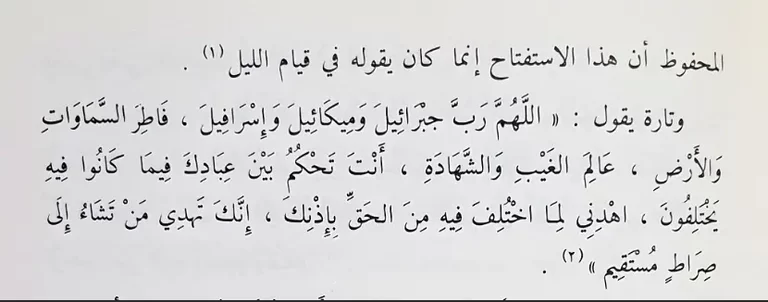 المحفوظ أن هذا الاستفتاح إنما كان يقوله في قيام الليل (١) .
وتارة يقول : « اللَّهُمَّ رَبَّ جِبْرَائِيلَ وَمِيكَائِيلَ وَإِسْرَافِيلَ ، فَاطِرَ السَّمَاوَاتِ
وَالأَرْضِ ، عَالِمَ الغَيْبِ وَالشَّهَادَةِ ، أَنْتَ تَحْكُمُ بَيْنَ عِبَادِكَ فِيمَا كَانُوا فِيهِ
يَخْتَلِفُونَ ، اهْدِنِي لِمَا اخْتُلِفَ فِيهِ مِنَ الحَقِّ بِإِذْنِكَ ، إِنَّكَ تَهْدِي مَنْ تَشَاءُ إِلَى
صِرَاطٍ مُسْتَقِيمٍ » (٢) .